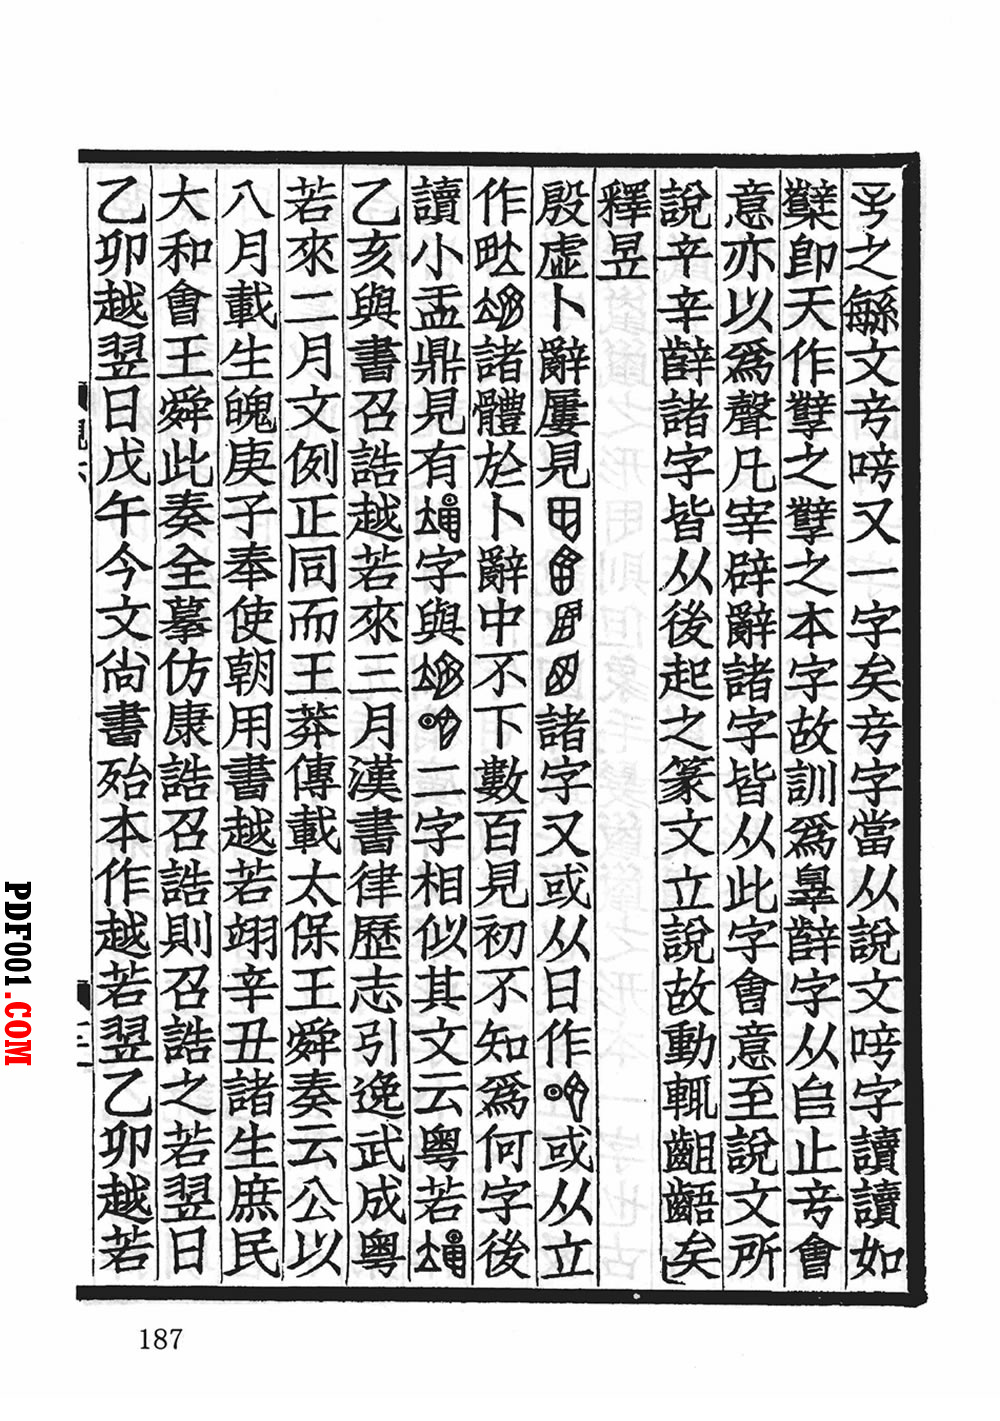 之緐文䇂㖕又一字矣䇂字當从說文㖕字讀讀如
櫱卽天作孽之孽之本字故訓爲辠辥字从𠂤止䇂會
意亦以爲聲凡宰辟辭諸字皆从此字會意至說文所
說辛䇂辥諸字皆从後起之篆文立說故動輒齟齬矣
釋昱
殷虛卜辭屢見諸字又或从日作或从立
作諸體於卜辭中不下數百見初不知爲何字後
讀小盂鼎見有字與二字相似其文云粵若
乙亥與書召誥越若來三月漢書律歷志引逸武成粵
若來二月文例正同而王莽傳載太保王舜奏云公以
八月載生魄庚子奉使朝用書越若翊辛丑諸生庶民
大和會王舜此奏全摹仿康誥召誥則召誥之若翌日
乙卯越翌日戊午今文尚書殆本作越若翌乙卯越若
187
PDF001.COM